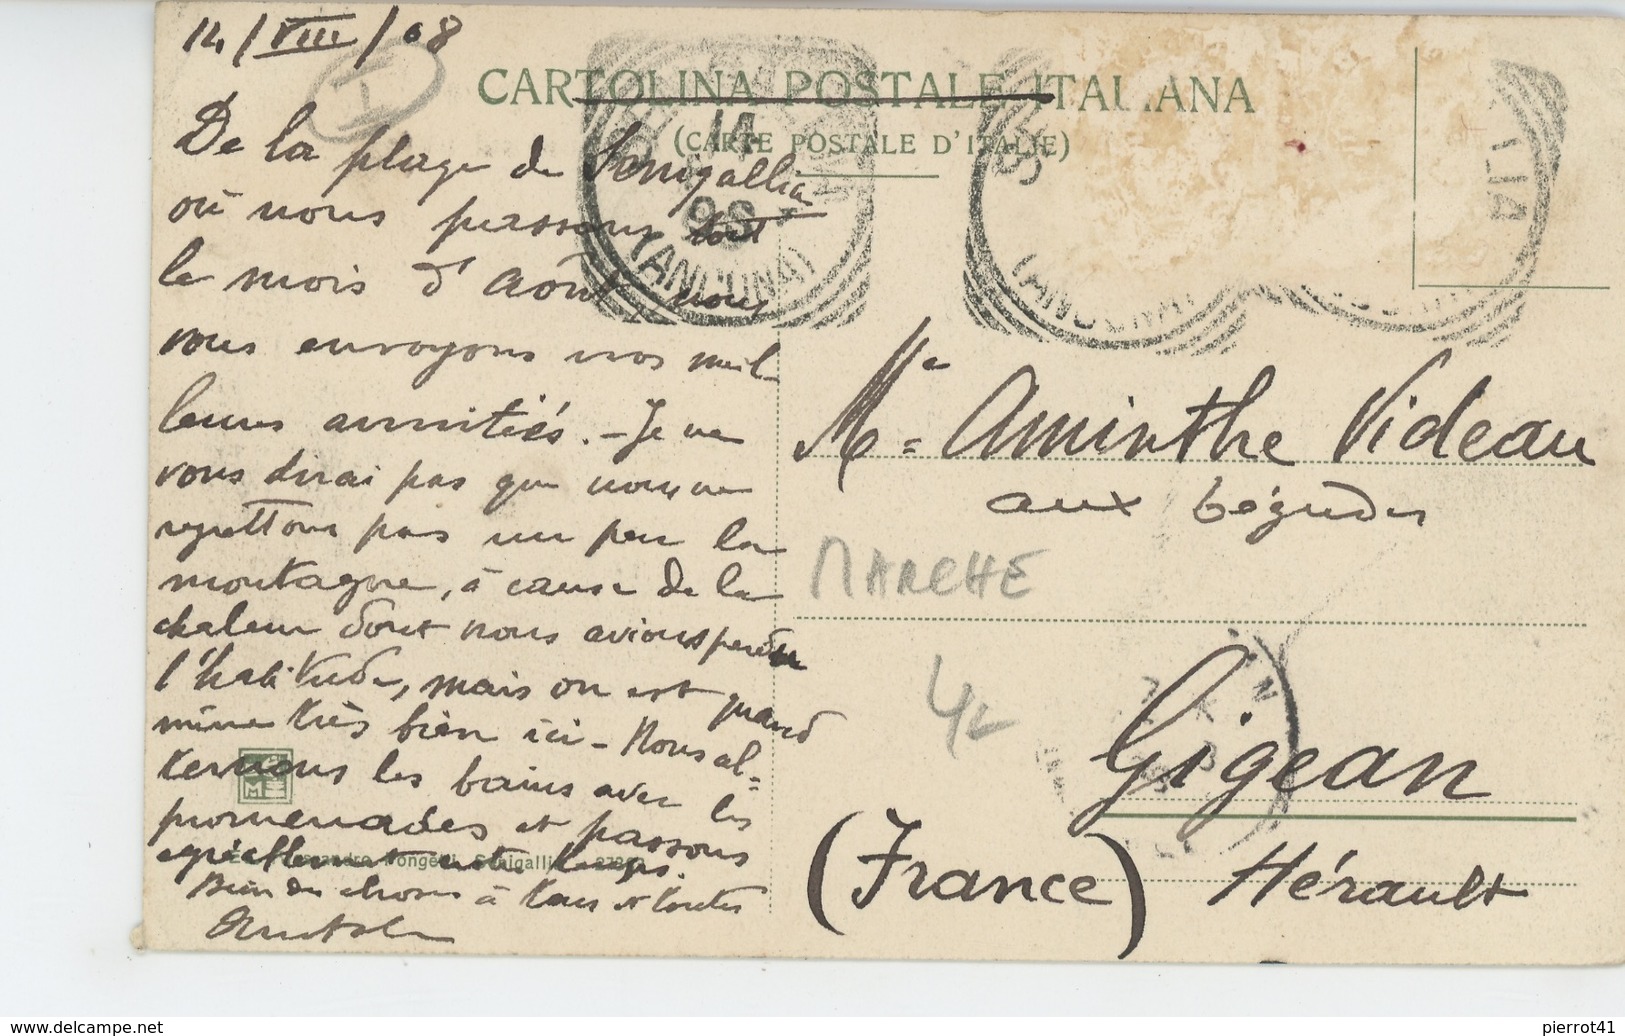 14/VIII/08
CARTOLINA POSTALE ITALIANA
(CARTE POSTALE D'ITALIE)
De la plage de Senigallia
où nous passons tout
le mois d'août, nous
vous envoyons nos meil
leures amitiés. - Je ne
vous dirai pas que nous ne
regrettons pas un peu la
montagne, à cause de la
chaleur dont nous avions perdu
l'habitude, mais on est quand
même très bien ici - Nous al=
ternons les bains avec les
promenades et passons
agréablement notre temps.
Bien des choses à tous et toutes
14
(ANCONA)
(ANCONA)
Mlle Aminthe Videau
aux bégudes
MARCHE
Gigean
(France) Hérault
Senigallia
pierrot41
https://www.delcampe.net